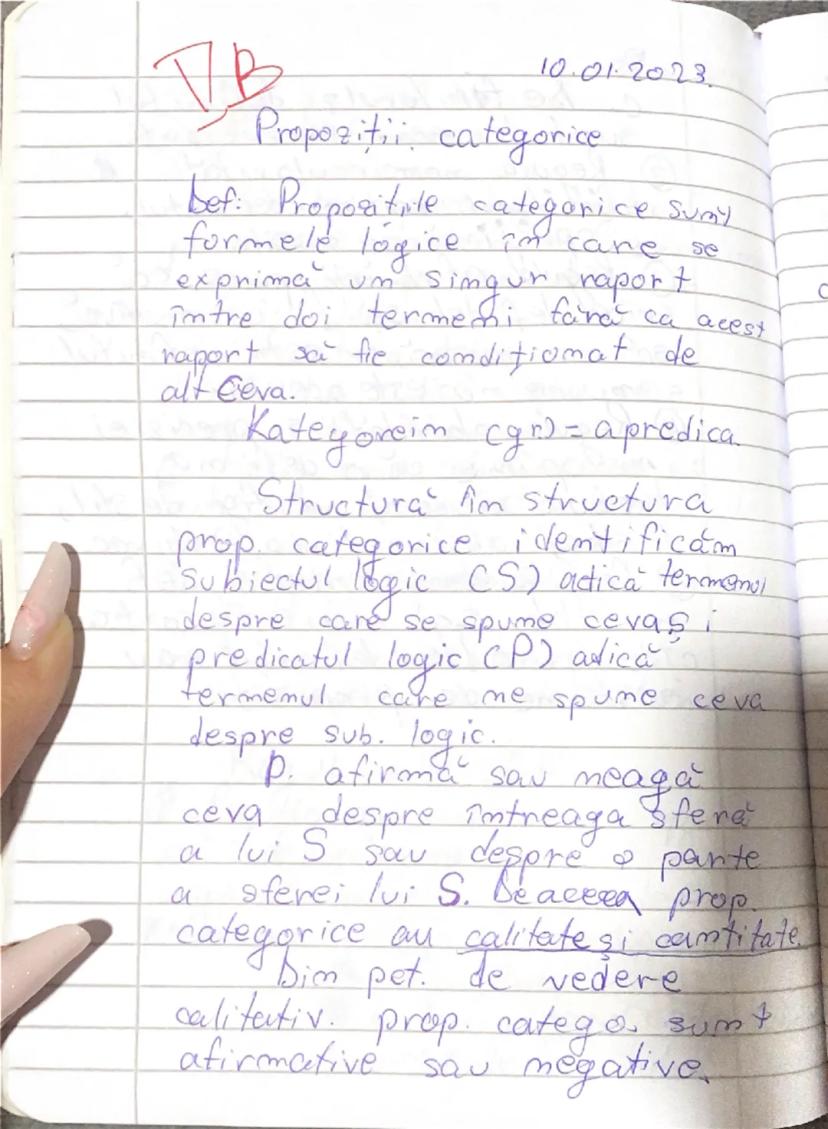 IV B
10.01.2023.
Propoziții categorice
Def: Propozitiile categorice sunt
formele logice în care se
exprimă un singur raport
între doi termeni fără ca acest
raport să fie condiționat de
altceva.
Kategorein (gr.) = a predica.
Structură În structura
prop. categorice identificăm
subiectul logic (S) adică termenul
despre care se spune ceva și
predicatul logic (P) adică
termenul care ne spune ceva
despre sub. logic.
P. afirmă sau neagă
ceva despre întreaga sferă
a lui S sau despre o parte
a sferei lui S. Deaceea prop.
categorice au calitate și cantitate.
Din pct. de vedere
calitativ. prop. catego. sunt
afirmative sau negative.